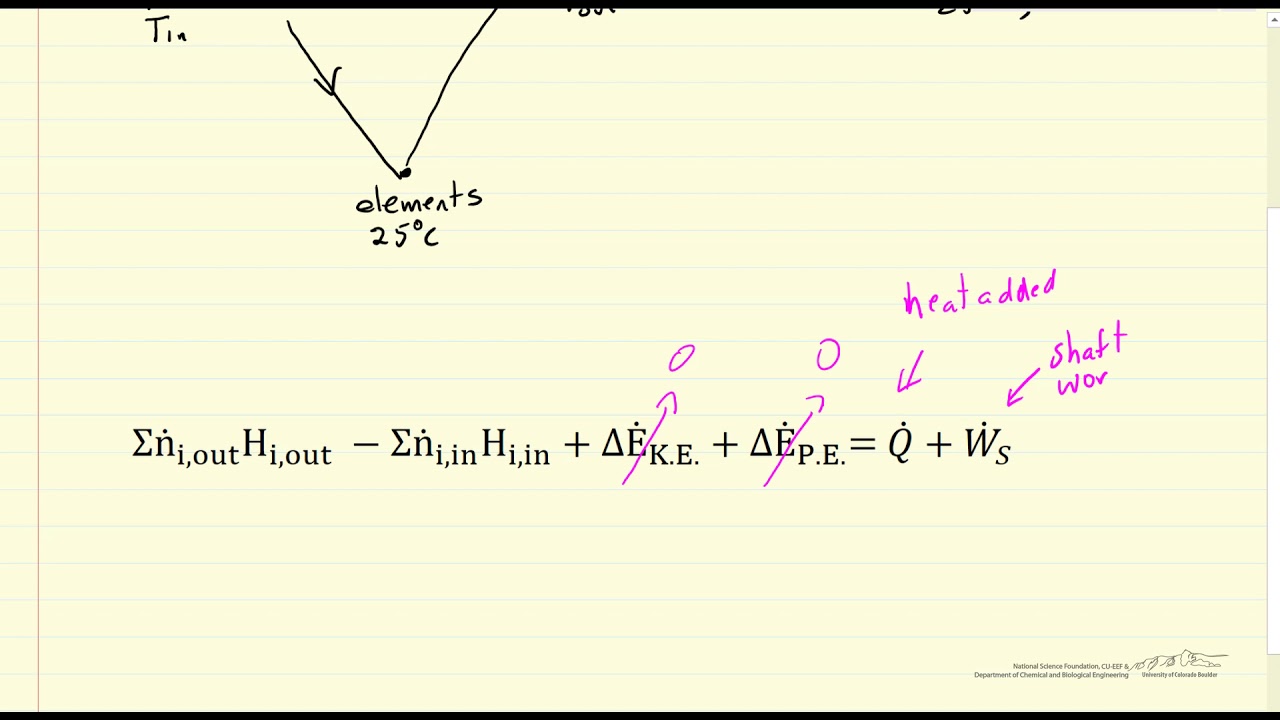 Tin
elements
25°C
heat added
0 0
shaft
wor
Σṅi,outHi,out − Σṅi,inHi,in + ΔĖK.E. + ΔĖP.E. = Q̇ + ẆS
National Science Foundation, CU-EEF &
Department of Chemical and Biological Engineering
University of Colorado Boulder